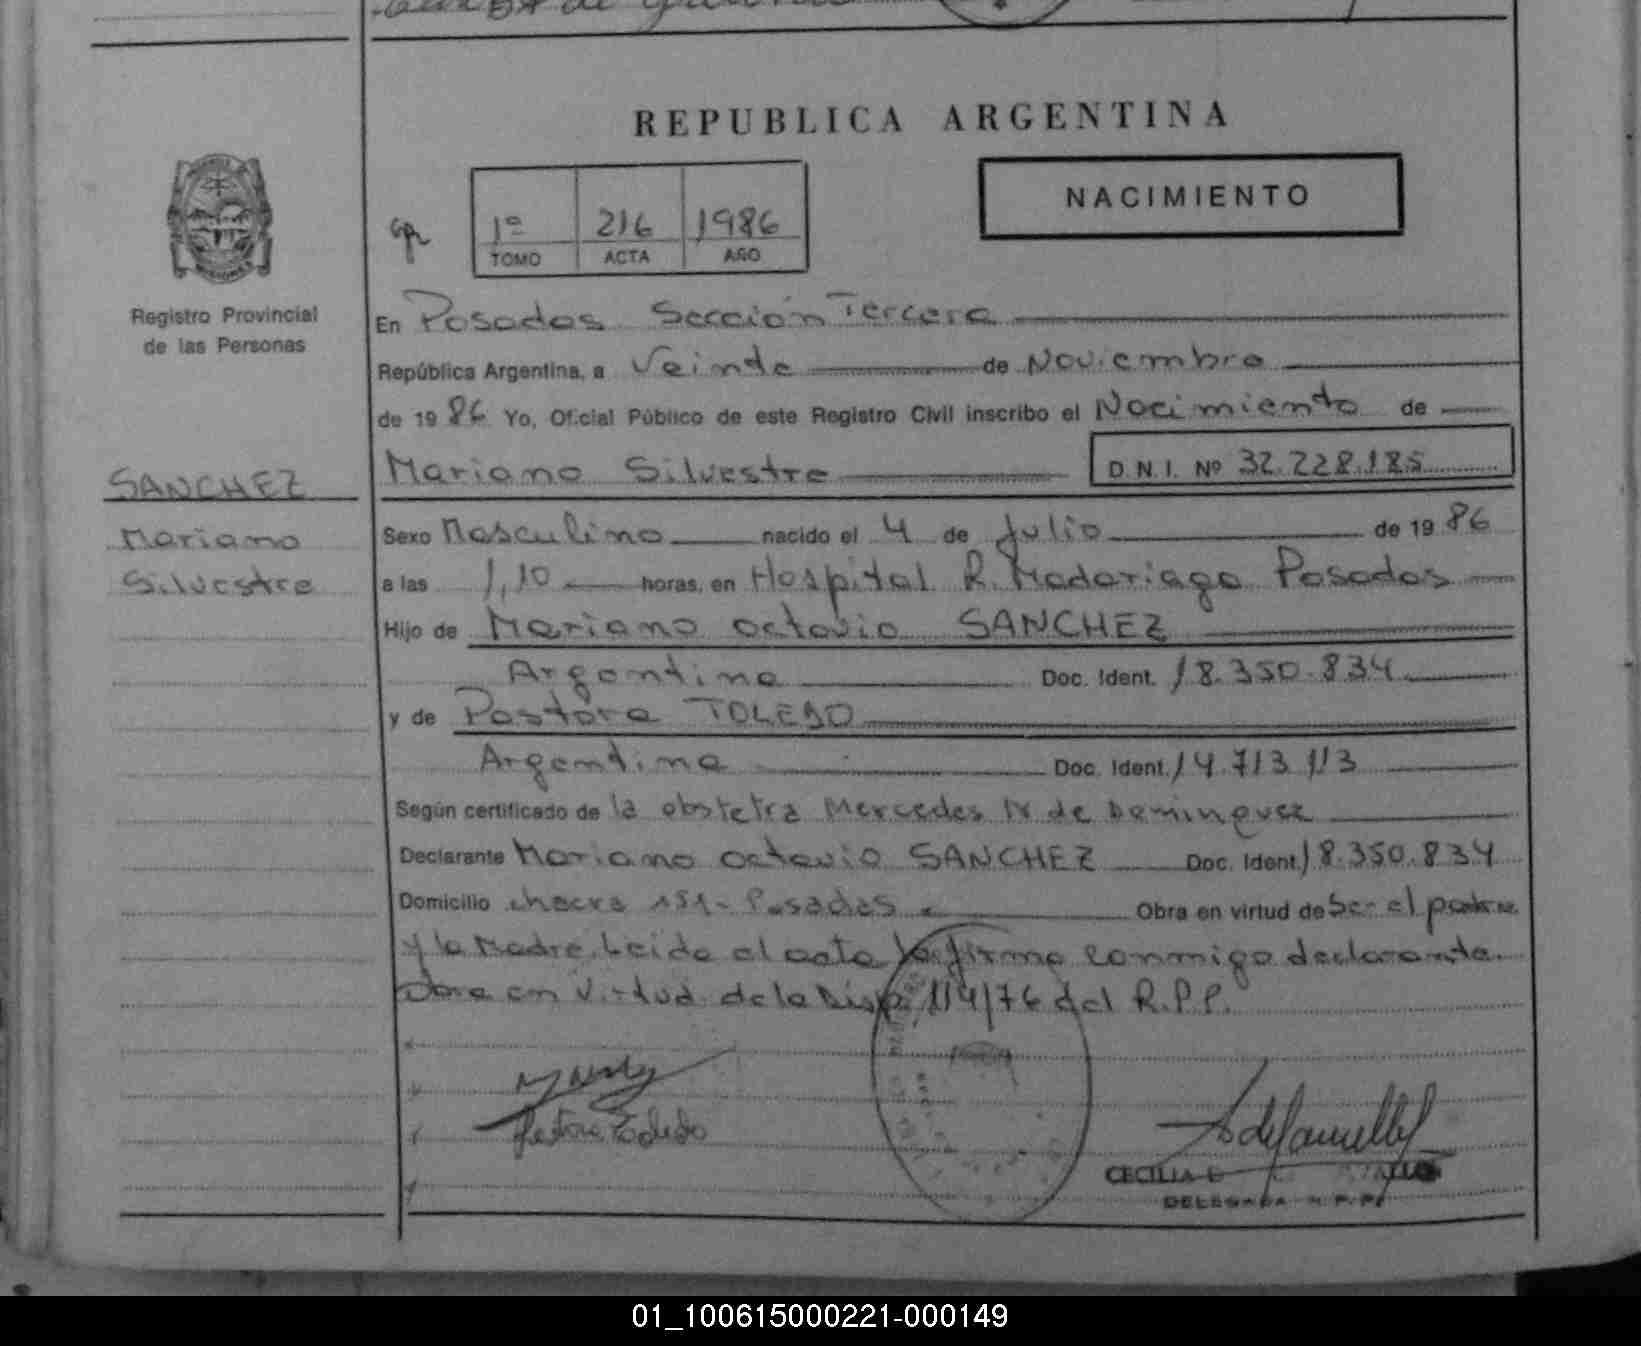 REPUBLICA ARGENTINA
NACIMIENTO
1º 216 1986
TOMO ACTA AÑO
Registro Provincial
de las Personas
En Posadas Sección Tercera
República Argentina, a Veinte de Noviembre
de 1986 Yo, Oficial Público de este Registro Civil inscribo el Nacimiento de
Mariano Silvestre D.N.I. Nº 32.228.185
SANCHEZ
Mariano
Silvestre
Sexo Masculino nacido el 4 de Julio de 1986
a las 1,10 horas, en Hospital R. Madariaga Posadas
Hijo de Mariano Octavio SANCHEZ
Argentina Doc. Ident. 18.350.834
y de Pastora TOLEDO
Argentina Doc. Ident. 14.713.113
Según certificado de la obstetra Mercedes N de Dominguez
Declarante Mariano Octavio SANCHEZ Doc. Ident. 18.350.834
Domicilio chacra 151 - Posadas. Obra en virtud de Ser el padre
y la Madre. Leida el acta la firma conmigo declarante.
Obra en virtud de la Disp. 114/76 del R.P.P.
Pastora Toledo
CECILIA
DELEGADA R.P.P.
01_100615000221-000149